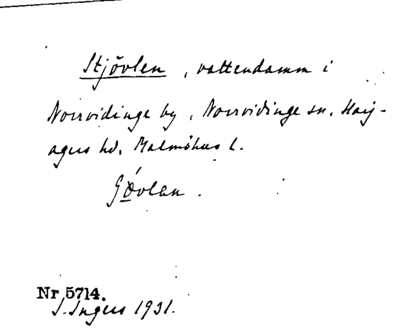 Stjövlen, vattendamm i
Norrvidinge by, Norrvidinge sn. Harj-
agers hd. Malmöhus l.
Nr 5714.
S. Ingers 1931.